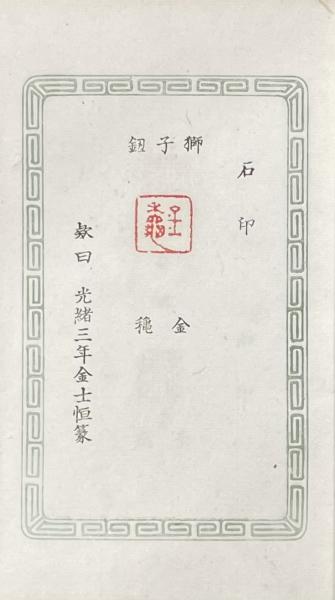 石印
獅子鈕
金穐
欵曰 光緒三年金士恒篆